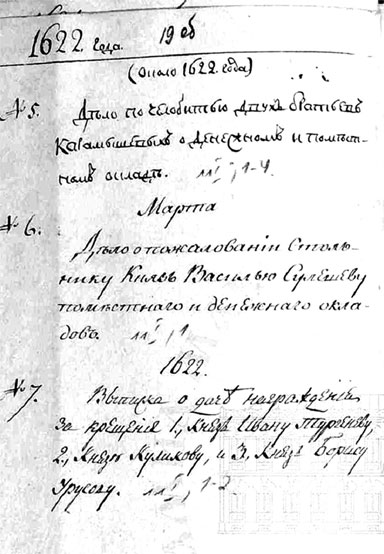 1622 года. 19 об
(около 1622. года)
№ 5. Дѣло по челобитью двухъ братьевъ
Карамышевыхъ о денежномъ и помѣст-
номъ окладѣ. 1-4.
Марта
№ 6.
Дѣло о пожалованіи Столь-
нику Князь Василью Сулешеву
помѣстнаго и денежнаго окла-
довъ.
1622.
№ 7. Выписка о дачѣ награжденія
за крещеніе 1, Князь Ивану Тургеневу,
2, Князю Куликову, и 3, Князь Борису
Урусову. 1-2